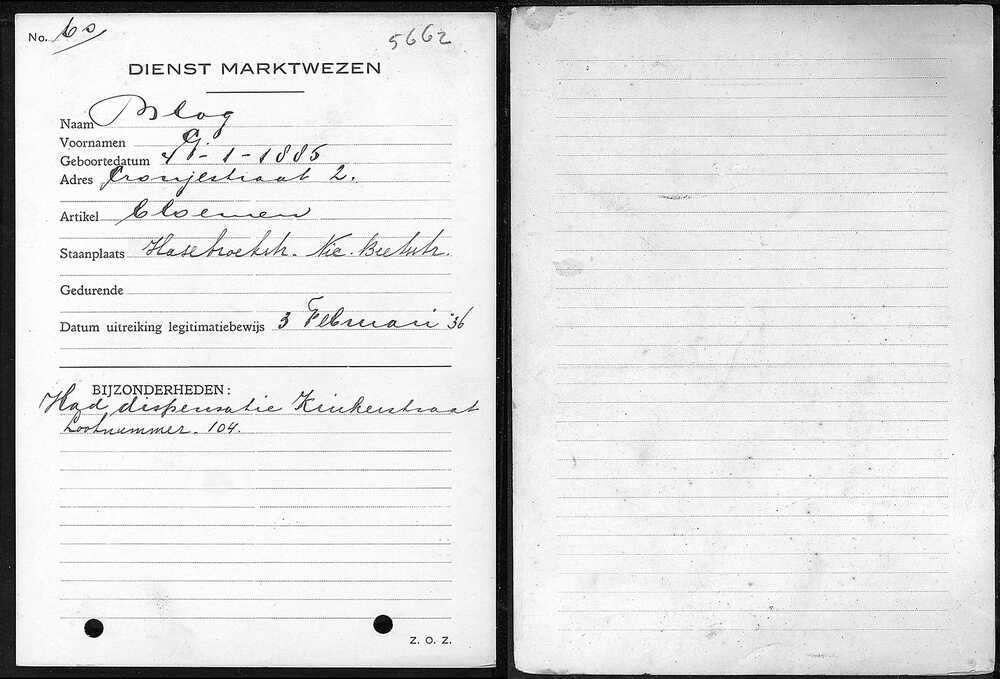 No. 60
5662
DIENST MARKTWEZEN
Naam Blog
Voornamen
Geboortedatum -1-1885
Adres Cronjéstraat 2.
Artikel bloemen
Staanplaats Hasebroekstr. Nic. Beetsstr.
Gedurende
Datum uitreiking legitimatiebewijs 3 Februari '36
BIJZONDERHEDEN:
Had dispensatie Kinkerstraat
Lootnummer. 104.
Z. O. Z.